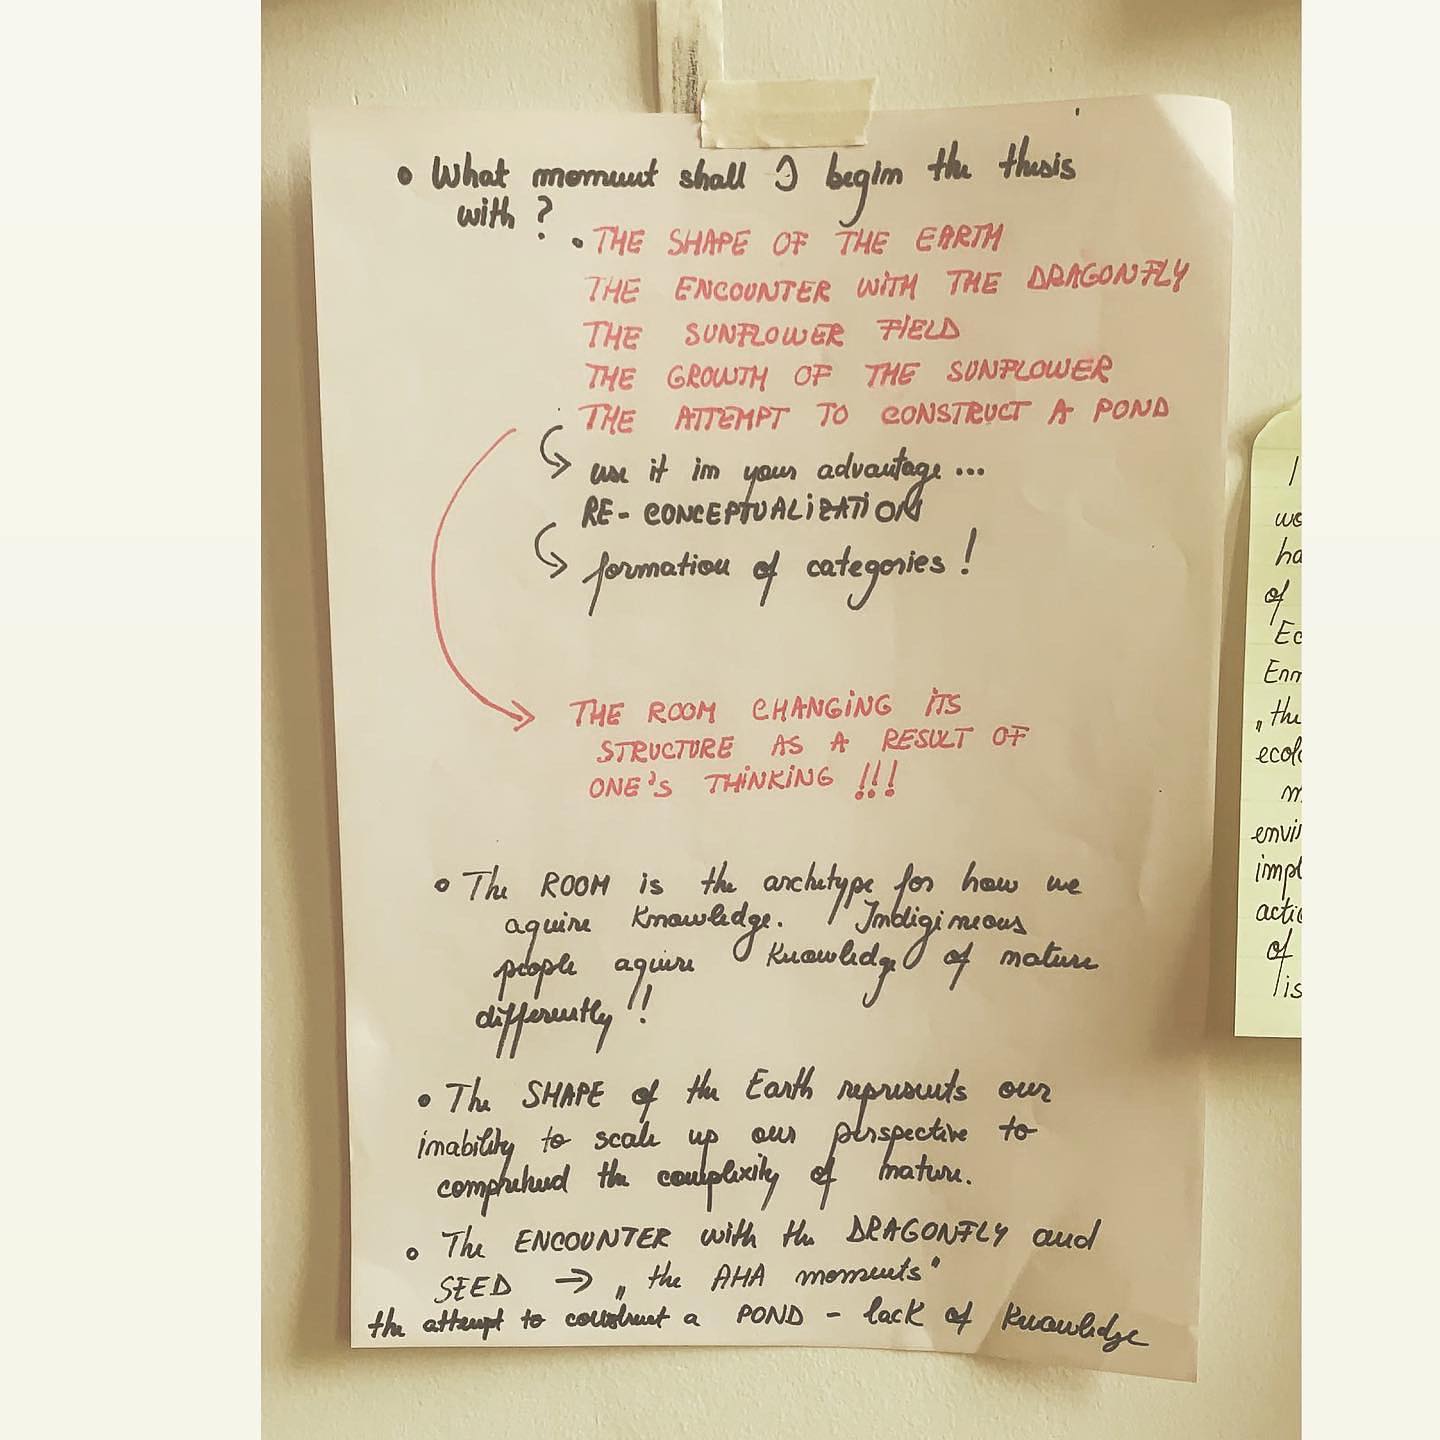 • What moment shall I begin the thesis
with ?
• THE SHAPE OF THE EARTH
THE ENCOUNTER WITH THE DRAGONFLY
THE SUNFLOWER FIELD
THE GROWTH OF THE SUNFLOWER
THE ATTEMPT TO CONSTRUCT A POND
use it in your advantage ...
RE - CONCEPTUALIZATION
formation of categories !
THE ROOM CHANGING ITS
STRUCTURE AS A RESULT OF
ONE'S THINKING !!!
• The ROOM is the archetype for how we
aquire Knowledge. Indigineous
people aquire Knowledge of nature
differently !!
• The SHAPE of the Earth represents our
inability to scale up our perspective to
comprehend the complexity of nature.
• The ENCOUNTER with the DRAGONFLY and
SEED → „ the AHA moments"
the attempt to construct a POND - lack of Knowledge
I
wo
ha
of
Ec
Enn
„ the
ecol
m
envi
impl
actio
of
is